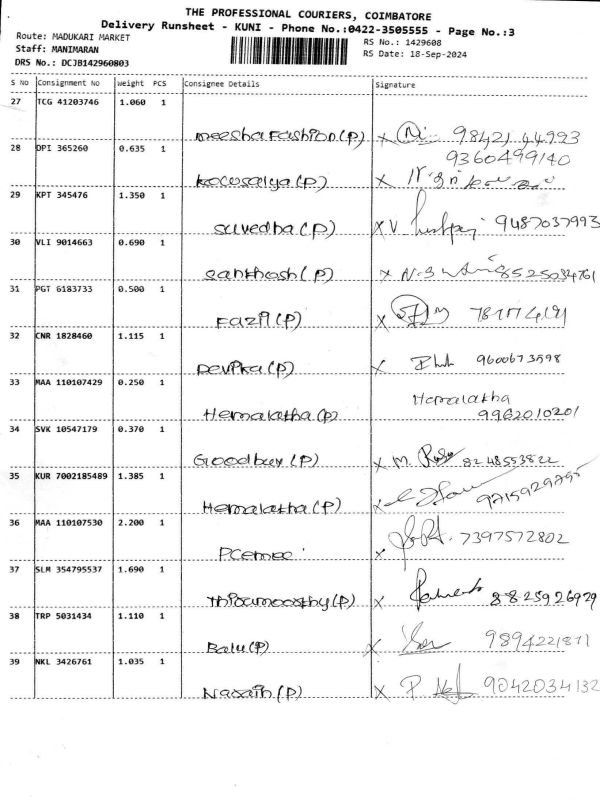 THE PROFESSIONAL COURIERS, COIMBATORE
Delivery Runsheet - KUNI - Phone No.:0422-3505555 - Page No.:3
Route: MADUKARI MARKET
RS No.: 1429608
Staff: MANIMARAN
RS Date: 18-Sep-2024
DRS No.: DCJB142960803
S No Consignment No Weight PCS Consignee Details Signature
27 TCG 41203746 1.060 1
meesha Fashion (P) x 98421 44993
28 DPI 365260 0.635 1
9360499140
kocusalya (P) x
29 KPT 345476 1.350 1
suvedha (P) x V 9487037993
30 VLI 9014663 0.690 1
santhosh (P) x 8525034761
31 PGT 6183733 0.500 1
Fazil (P) x
32 CNR 1828460 1.115 1
Devika (P) x 9600673598
33 MAA 110107429 0.250 1
Hemalatha
Hemalatha (P) 9962010201
34 SVK 10547179 0.370 1
Goodbuy (P) x M. 8248553822
35 KUR 7002185489 1.385 1
Hemalatha (P) x 9715929795
36 MAA 110107530 2.200 1
x 7397572802
37 SLM 354795537 1.690 1
Thiramoorthy (P) x 8825926929
38 TRP 5031434 1.110 1
Balu (P) x 9894221871
39 NKL 3426761 1.035 1
x P. 9042034132